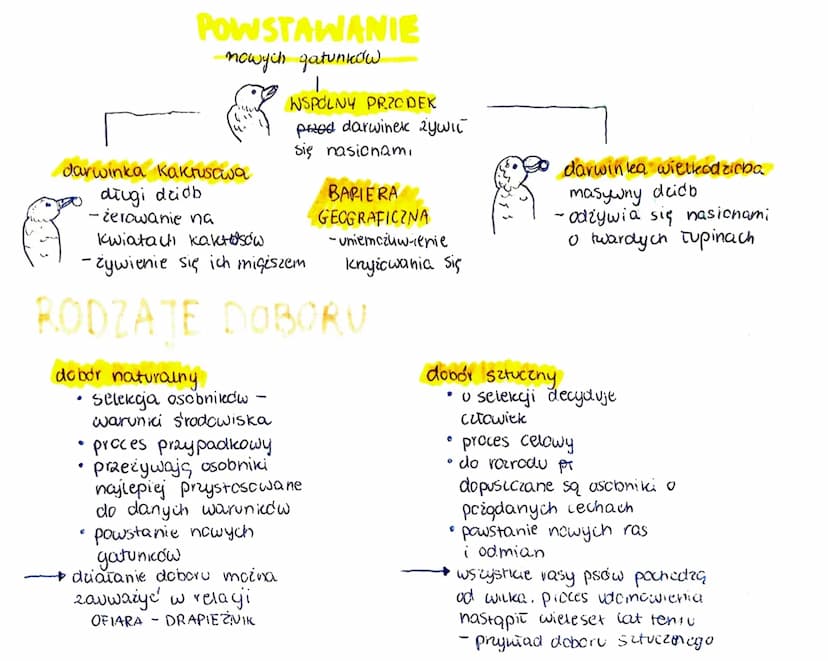 POWSTAWANIE
nowych gatunków
WSPÓLNY PRZODEK
przod darwinek żywić
się nasionami
darwinka kaktusowa
długi dziób
- żerowanie na
kwiatach kaktusów
- żywienie się ich miąższem
BARIERA
GEOGRAFICZNA
- uniemożliwienie
krzyżowania się
darwinka wielkodzioba
masywny dziób
- odżywia się nasionami
o twardych łupinach
RODZAJE DOBORU
dobór naturalny
• selekcja osobników –
warunki środowiska
• proces przypadkowy
• przeżywają osobniki
najlepiej przystosowane
do danych warunków
• powstanie nowych
gatunków
→ działanie doboru można
zauważyć w relacji
OFIARA - DRAPIEŻNIK
dobór sztuczny
• o selekcji decyduje
człowiek
• proces celowy
• do rozrodu
dopuszczane są osobniki o
pożądanych cechach
• powstanie nowych ras
i odmian
→ wszystkie rasy psów pochodzą
od wilka. proces udomowienia
nastąpił wieleset lat temu
- przykład doboru sztucznego